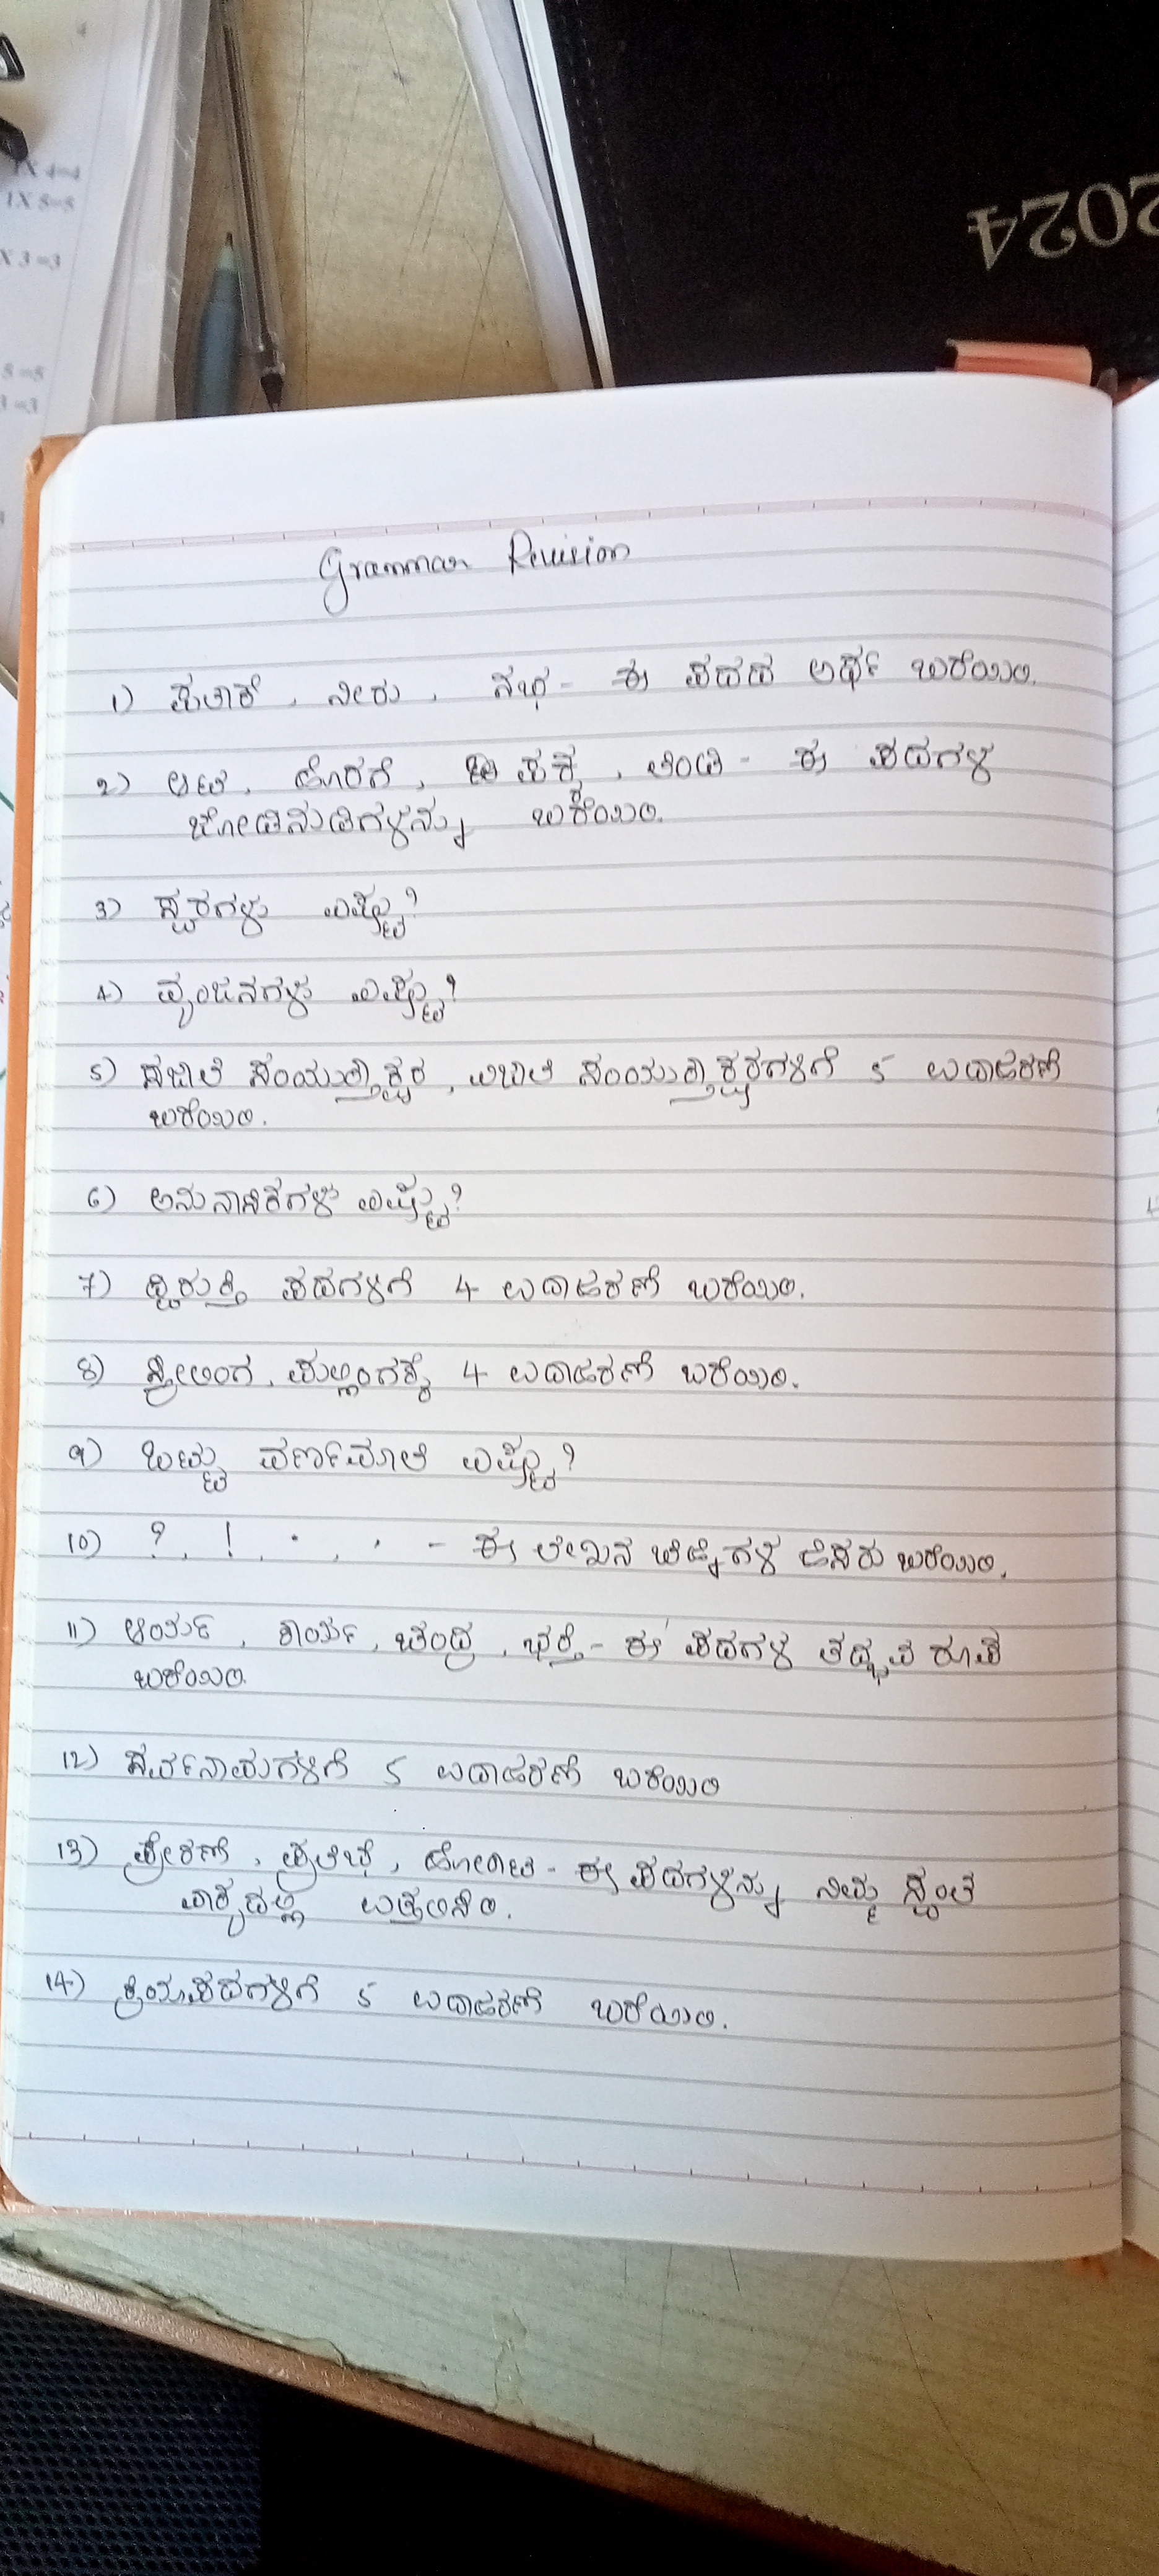 1X 4=4
1X 5=5
X 3=3
5=5
1=3
2024
Grammar Revision
1) ಪತಾಕೆ, ನೀರು, ನಭ - ಈ ಪದದ ಅರ್ಥ ಬರೆಯಿರಿ.
2) ಆಟ, ಹೊರಗೆ, ಅಕ್ಕ ಪಕ್ಕ, ತಿಂಡಿ - ಈ ಪದಗಳ
ಜೋಡಿನುಡಿಗಳನ್ನು ಬರೆಯಿರಿ.
3) ಸ್ವರಗಳು ಎಷ್ಟು?
4) ವ್ಯಂಜನಗಳು ಎಷ್ಟು?
5) ಸಜಾತಿ ಸಂಯುಕ್ತಾಕ್ಷರ, ವಿಜಾತಿ ಸಂಯುಕ್ತಾಕ್ಷರಗಳಿಗೆ 5 ಉದಾಹರಣೆ
ಬರೆಯಿರಿ.
6) ಅನುನಾಸಿಕಗಳು ಎಷ್ಟು?
7) ದ್ವಿರುಕ್ತಿ ಪದಗಳಿಗೆ 4 ಉದಾಹರಣೆ ಬರೆಯಿರಿ.
8) ಸ್ತ್ರೀಲಿಂಗ, ಪುಲ್ಲಿಂಗಕ್ಕೆ 4 ಉದಾಹರಣೆ ಬರೆಯಿರಿ.
9) ಒಟ್ಟು ವರ್ಣಮಾಲೆ ಎಷ್ಟು?
10) ?, !, ., , - ಈ ಲೇಖನ ಚಿಹ್ನೆಗಳ ಹೆಸರು ಬರೆಯಿರಿ.
11) ಆರ್ಯ, ಕಾರ್ಯ, ಚಂದ್ರ, ಭಕ್ತಿ - ಈ ಪದಗಳ ತದ್ಭವ ರೂಪ
ಬರೆಯಿರಿ.
12) ಸರ್ವನಾಮಗಳಿಗೆ 5 ಉದಾಹರಣೆ ಬರೆಯಿರಿ
13) ಪ್ರೇರಣೆ, ಪ್ರತಿಭೆ, ಹೋರಾಟ - ಈ ಪದಗಳನ್ನು ನಿಮ್ಮ ಸ್ವಂತ
ವಾಕ್ಯದಲ್ಲಿ ಬಳಸಿರಿ.
14) ಕ್ರಿಯಾಪದಗಳಿಗೆ 5 ಉದಾಹರಣೆ ಬರೆಯಿರಿ.